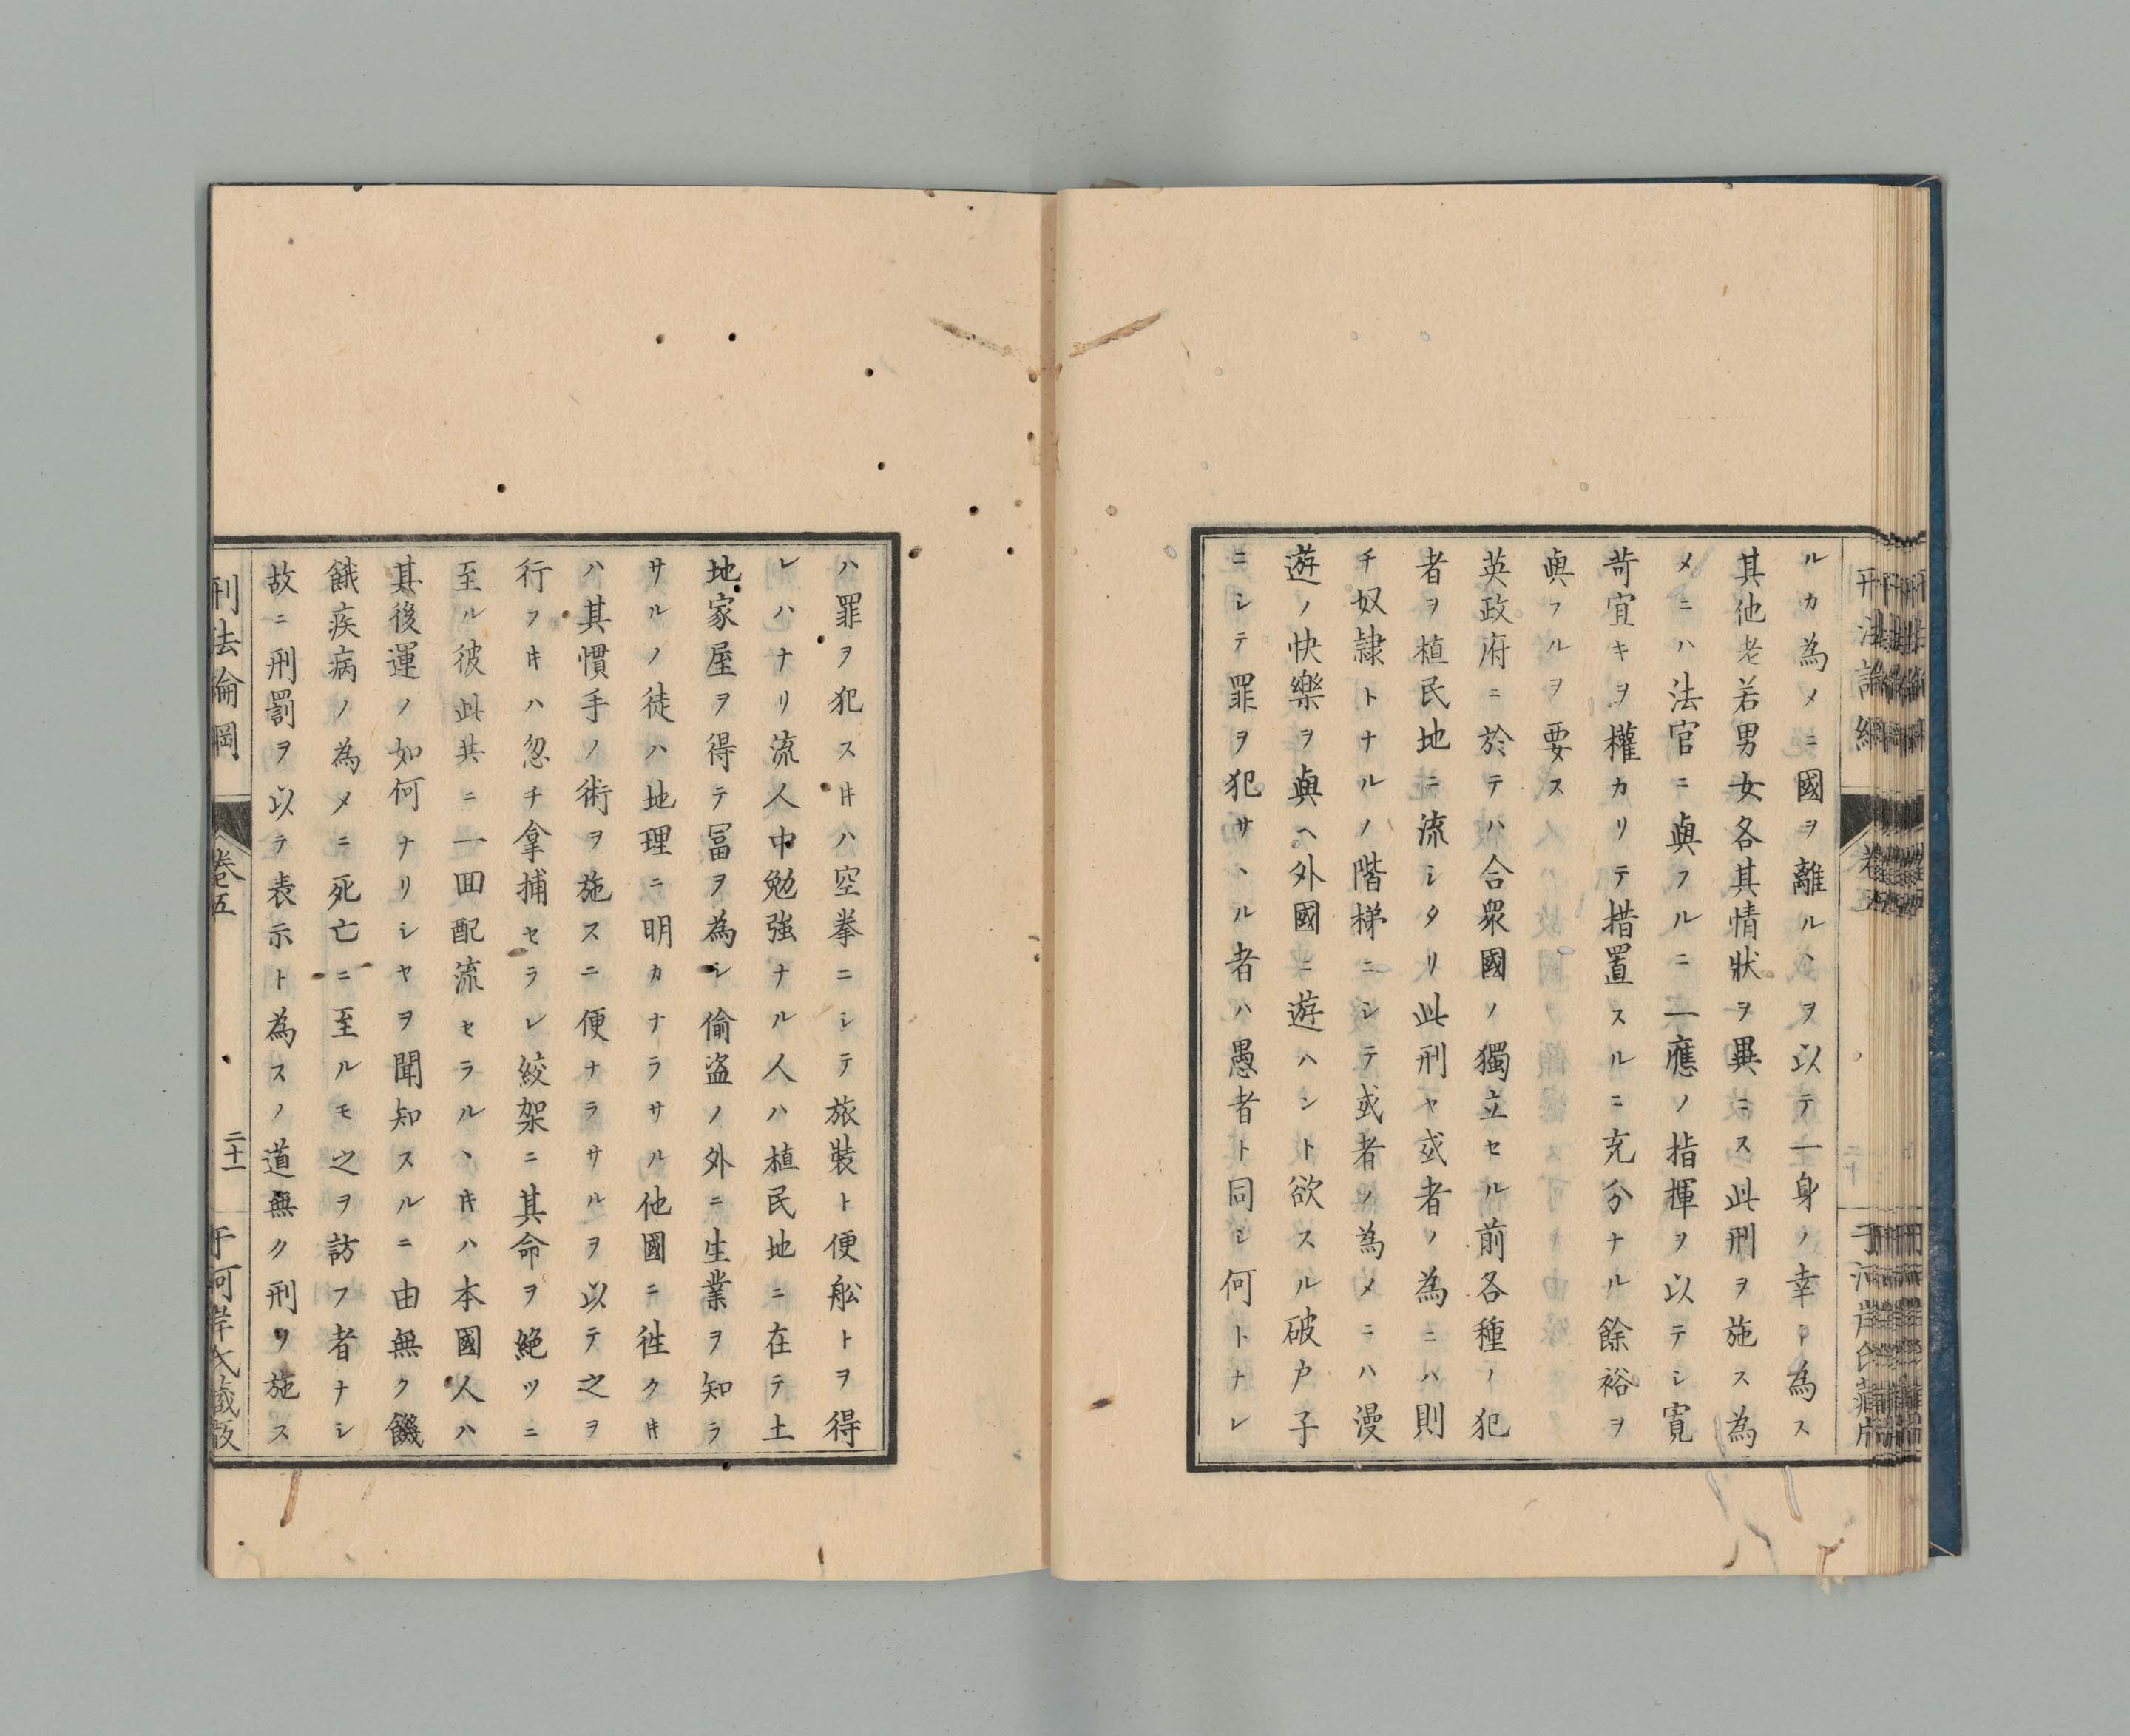 ルカ為メニ國ヲ離ルヽヲ以テ一身ノ幸ト為ス
其他老若男女各其情狀ヲ異ニス此刑ヲ施ス為
メニハ法官ニ與フルニ一應ノ指揮ヲ以テシ寛
苛宜キヲ權カリテ措置スルニ充分ナル餘裕ヲ
與フルヲ要ス
英政府ニ於テハ合衆國ノ獨立セル前各種ノ犯
者ヲ植民地ニ流シタリ此刑ヤ或者ノ為ニハ則
チ奴隷トナルノ階梯ニシテ或者ノ為メニハ漫
遊ノ快樂ヲ與ヘ外國ニ遊ハント欲スル破戸子
ニシテ罪ヲ犯サヽル者ハ愚者ト同シ何トナレ
ハ罪ヲ犯スキハ空拳ニシテ旅裝ト便舩トヲ得
レハナリ流人中勉強ナル人ハ植民地ニ在テ土
地家屋ヲ得テ冨ヲ為シ偷盗ノ外ニ生業ヲ知ラ
サルノ徒ハ地理ニ明カナラサル他國ニ徃クキ
ハ其慣手ノ術ヲ施スニ便ナラサルヲ以テ之ヲ
行フキハ忽チ拿捕セラレ絞架ニ其命ヲ絶ツニ
至ル彼此共ニ一囬配流セラルヽキハ本國人ハ
其後運ノ如何ナリシヤヲ聞知スルニ由無ク饑
餓疾病ノ為メニ死亡ニ至ルモ之ヲ訪フ者ナシ
故ニ刑罰ヲ以テ表示ト為スノ道無ク刑ヲ施ス
刑法論綱 卷五 二十一 于河岸氏藏版